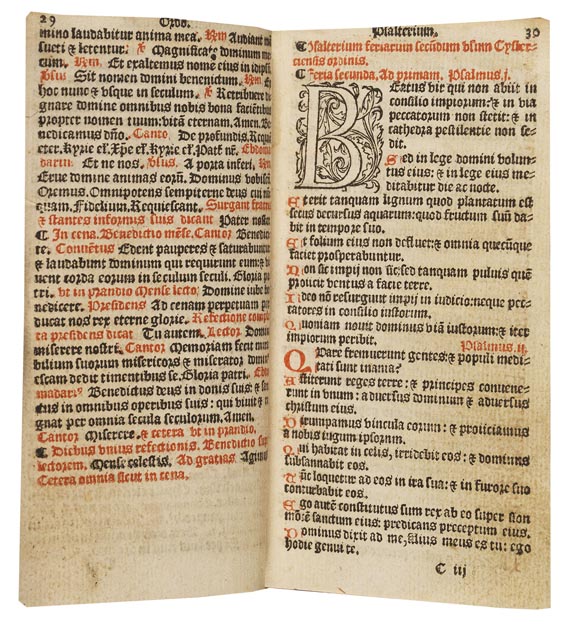 29 Ordo.
mino laudabitur anima mea. Rm Audiant man
sueti & letentur. ℣ Magnificate dominum me
cum. Rm. Et exaltemus nome eius in idipsũ
Vsus Sit nomen domini benedictum. Rm.
hoc nunc & vsque in seculum. ℟ Retribuere di
gnare domine omnibus nobis bona faciẽtibus
propter nomen tuum: vitã eternam. Amen. Be
nedicamus dño. Cantor. De profundis. Requi
Kyrie el. Xp̃e el. Kyrie el. Pat nr̃.
Et ne nos. Vsus. A porta inferi.
Erue domine animas eorũ. Dominus vobiscũ
Oremus. Omnipotens sempiterne deus cui nũ
quam. Fidelium. Requiescant. Surgant fratres
& stantes informis suis dicant Pater noster
¶ In cena. Benedictio mẽse. Cantor Benedici
te. Conuẽtus Edent pauperes & saturabuntur
& laudabunt dominum qui requirunt eum: & vi
uent corda eorum in seculum seculi. Gloria pa
tri. vt in prandio Mense lector Domine iube be
nedicere. Presidens Ad cenam perpetuam per
ducat nos rex eterne glorie. Refectione comple
ta presidens dicat Tu autem. Lector Domine
miserere nostri. Cantor Memoriam fecit mira
bilium suorum misericors & miserator dominus
escam dedit timentibus se. Gloria patri. Ebdo
madari⁹ Benedictus deus in donis suis: & san
ctus in omnibus operibus suis: qui viuit & re
gnat per omnia secula seculorum. Amen.
Cantor Miserere. & cetera vt in prandio.
¶ Diebus vnius refectionis. Benedictio super
lectorem. Mense celestis. Ad gratias Agimus
Cetera omnia sicut in cena.
Psalterium. 30
¶ Psalterium feriarum secũdum vsum Cyster-
ciensis ordinis.
¶ Feria secunda, Ad primam. Psalmus. j.
BEatus vir qui non abiit in
consilio impiorum: & in via
peccatorum non stetit: & in
cathedra pestilentie non se-
dit.
Sed in lege domini volun-
tas eius: & in lege eius me-
ditabitur die ac nocte.
Et erit tanquam lignum quod plantatum est
secus decursus aquarum: quod fructum suũ da-
bit in tempore suo.
Et folium eius non defluet: & omnia quecũque
faciet prosperabuntur.
Non sic impij non sic: sed tanquam puluis quẽ
proiicit ventus a facie terre.
Ideo nõ resurgunt impij in iudicio: neque pec-
catores in consilio iustorum.
Quoniam nouit dominus viã iustorum: & iter
impiorum peribit. Psalmus. ij.
QUare fremuerunt gentes: & populi medi-
tati sunt inania?
Astiterunt reges terre: & principes conuene-
runt in vnum: aduersus dominum & aduersus
christum eius.
Dirumpamus vincula eorum: & proiiciamus
a nobis iugum ipsorum.
Qui habitat in celis, irridebit eos: & dominus
subsannabit eos.
Tũc loquetur ad eos in ira sua: & in furore suo
conturbabit eos.
Ego autẽ constitutus sum rex ab eo super sion
mõtẽ sanctum eius: predicans preceptum eius.
Dominus dixit ad me, filius meus es tu: ego
hodie genui te.
C iij